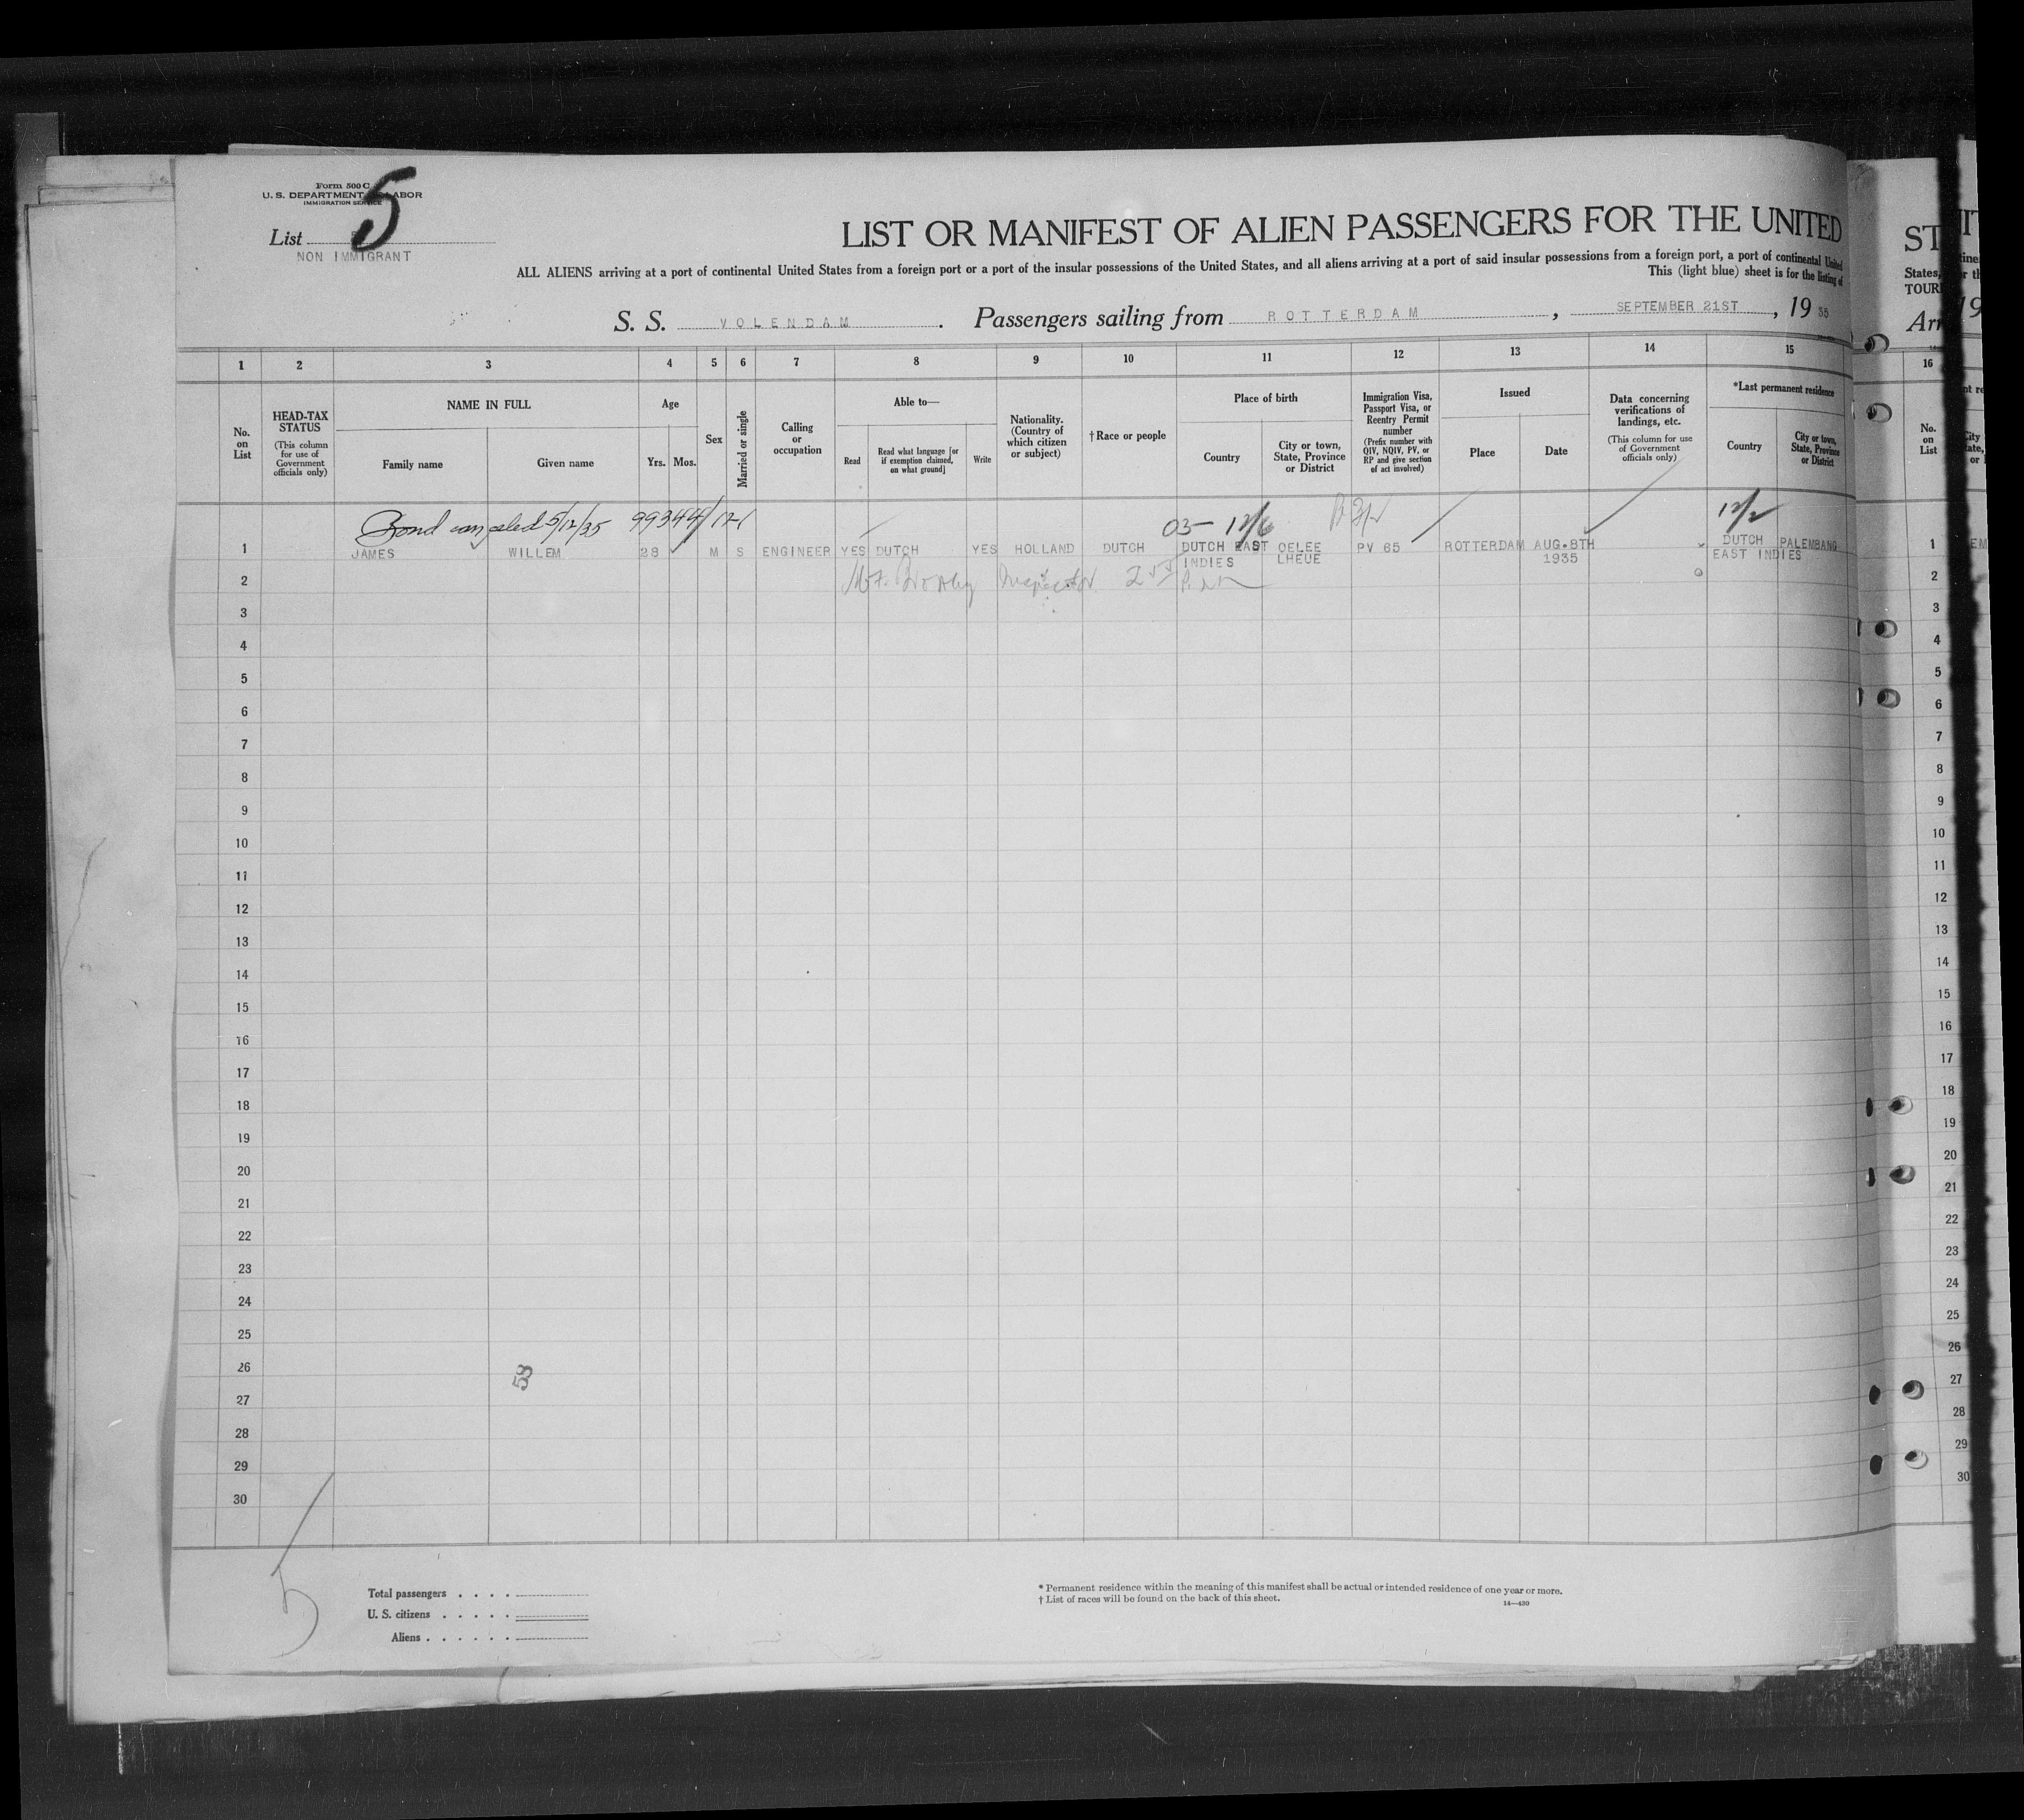 Form 500 C
U. S. DEPARTMENT OF LABOR
IMMIGRATION SERVICE
5
List
NON IMMIGRANT
LIST OR MANIFEST OF ALIEN PASSENGERS FOR THE UNITED
ALL ALIENS arriving at a port of continental United States from a foreign port or a port of the insular possessions of the United States, and all aliens arriving at a port of said insular possessions from a foreign port, a port of continental United
This (light blue) sheet is for the listing of
S. S. VOLENDAM. Passengers sailing from ROTTERDAM, SEPTEMBER 21ST, 19 35
1 2 3 4 5 6 7 8 9 10 11 12 13 14 15
No. on List
HEAD-TAX STATUS
(This column for use of Government officials only)
NAME IN FULL
Family name
Given name
Age
Yrs.
Mos.
Sex
Married or single
Calling or occupation
Able to—
Read
Read what language [or if exemption claimed, on what ground]
Write
Nationality. (Country of which citizen or subject)
† Race or people
Place of birth
Country
City or town, State, Province or District
Immigration Visa, Passport Visa, or Reentry Permit number
(Prefix number with QIV, NQIV, PV, or RP and give section of act involved)
Issued
Place
Date
Data concerning verifications of landings, etc.
(This column for use of Government officials only)
*Last permanent residence
Country
City or town, State, Province or District
Bond canceled 5/12/35 99344/171
03- 12/6
12/2
1 JAMES WILLEM 28 M S ENGINEER YES DUTCH YES HOLLAND DUTCH DUTCH EAST INDIES OELEE LHEUE PV 65 ROTTERDAM AUG.8TH 1935 DUTCH EAST INDIES PALEMBANG
2
Inspector
3
4
5
6
7
8
9
10
11
12
13
14
15
16
17
18
19
20
21
22
23
24
25
26
27
28
29
30
58
5
Total passengers . . . .
U. S. citizens . . . . .
Aliens . . . . . .
* Permanent residence within the meaning of this manifest shall be actual or intended residence of one year or more.
† List of races will be found on the back of this sheet.
14—430
ST
States,
TOUR
Arr
16
No. on List
1
2
3
4
5
6
7
8
9
10
11
12
13
14
15
16
17
18
19
20
21
22
23
24
25
26
27
28
29
30